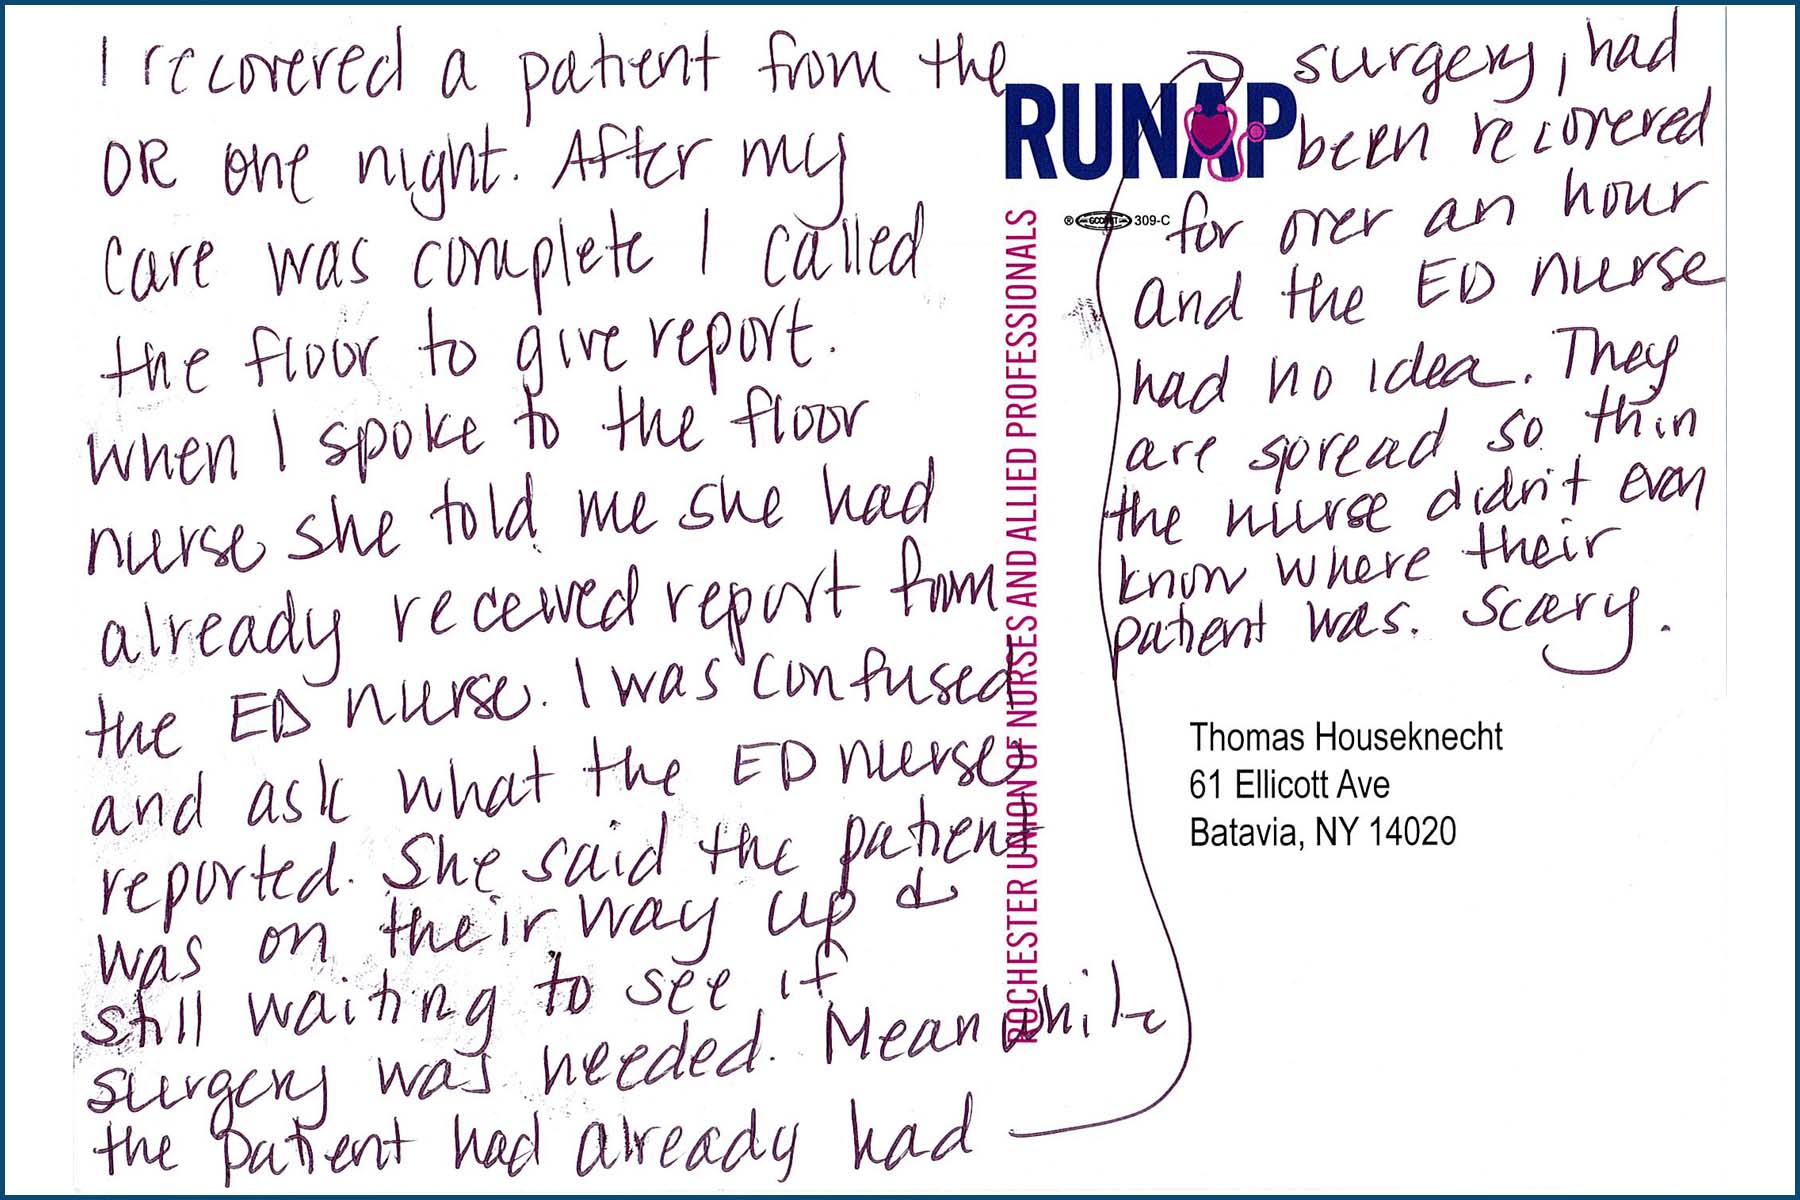 I recovered a patient from the
OR one night. After my
care was complete I called
the floor to give report.
When I spoke to the floor
nurse she told me she had
already received report from
the ED nurse. I was confused
and ask what the ED nurse
reported. She said the patient
was on their way up &
still waiting to see if
surgery was needed. Meanwhile
the patient had already had
surgery, had
been recovered
for over an hour
and the ED nurse
had no idea. They
are spread so thin
the nurse didn't even
know where their
patient was. Scary.
RUNAP
® 309-C
ROCHESTER UNION OF NURSES AND ALLIED PROFESSIONALS
Thomas Houseknecht
61 Ellicott Ave
Batavia, NY 14020